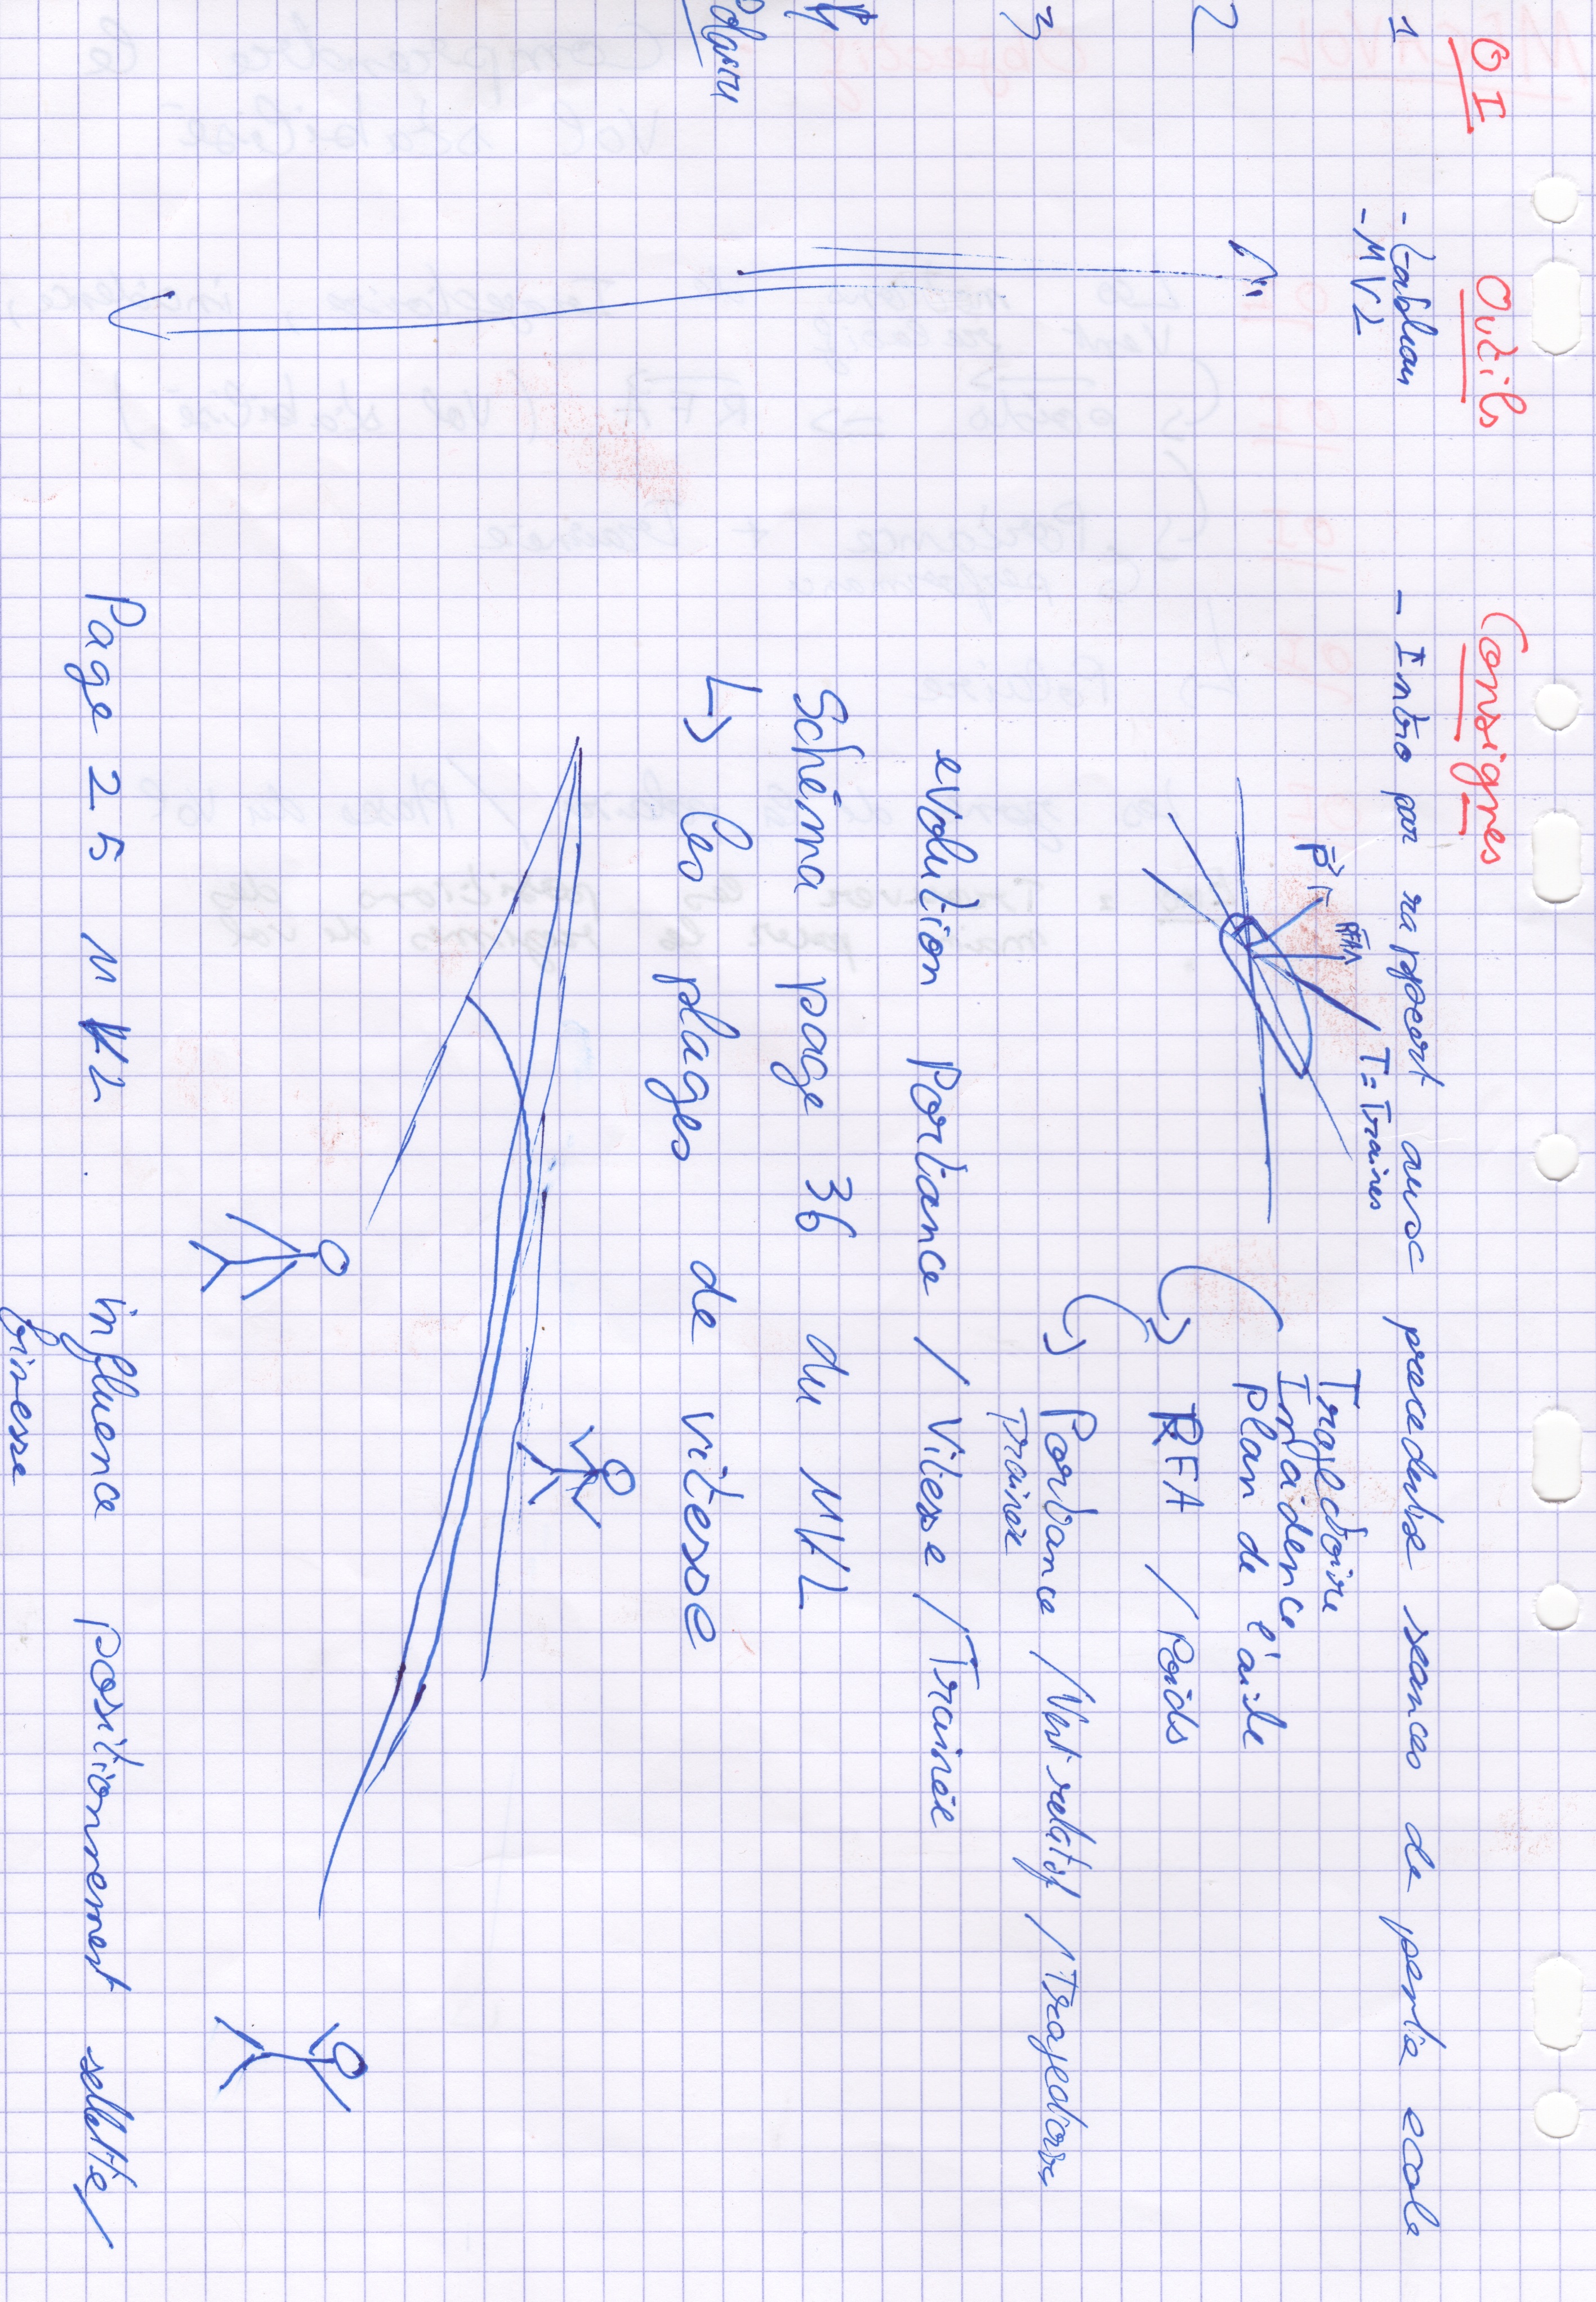 OI Outils Consignes
1 - tableau - Intro par rapport aux procedures seances de pente ecole
- MVL
P RFA T = Trainée
Trajectoire
Incidence
plan de l'aile
2 RFA / Poids
3 Portance / Vent relatif / Trajectoire
Trainée
evolution Portance / Vitesse / Trainée
4 Schéma page 36 du MVL
↳ les plages de vitesse
Page 25 MVL influence positionnement sellette/
finesse